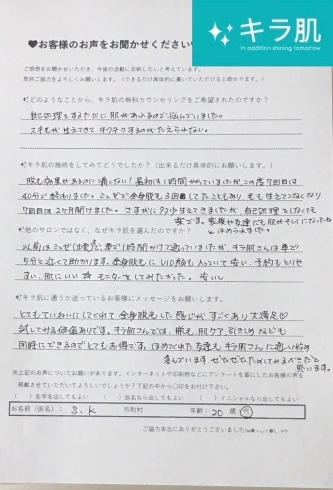 キラ肌
in addition shining tomorrow
♥お客様のお声をお聞かせください
ご感想をお聞かせいただき、今後の活動に反映したいと考えています。
是非ご協力をよろしくお願いします。（できるだけ具体的に書いていただけると助かります。）
●どのようなことから、キラ肌の無料カウンセリングをご希望されたのですか？
自己処理をするたびに肌があれるので悩んでいました。
スネ毛が生えてきてチクチクするのがたえられない。
●キラ肌の施術をしてみてどうでしたか？（出来るだけ具体的にお願いします。）
脱毛効果があるのに痛くない！最初は1時間かかっていましたがこの度7回目は
40分で終わりました。ミュゼで全身脱毛3回通してたこともあり、毛も生えてこなくなり
7回目は2ヶ月開けました。さすがに少し生えてきましたが、自己処理としなくても
楽です。家族や友達にも肌がキレイになったね
とほめられました。
●他のサロンではなく、なぜキラ肌を選んだのですか？
以前はミュゼ（出雲）へ車で1時間かけて通っていましたが、キラ肌さんは車で
5分と近くて助かります。全身脱毛にVIO脱毛も入っていて安い、予約もとりや
すい、肌にいい、モニターをしてみたかった。安い
●キラ肌に通うか迷っているお客様にメッセージをお願いします。
とてもていねいにしてくれて全身脱毛した感じがすごくあり大満足♡
試してみる価値ありです。キラ肌さんでは、脱毛、肌ケア、引きしめなども
同時にできるのでとてもお得です。ほめてくれた友達もキラ肌さんに通い始め
喜んでいます。ぜひぜひためしてみるべきだと
思います。
※上記のお声についてお願いがあります。インターネットや印刷物などにアンケートを基にしたお客様の声を
掲載させていただいてよろしいでしょうか？下記の中から〇印をお付け下さい。
（　）名字を出してもよい　（　）仮名なら出してもよい　（　）イニシャルなら出してもよい
お名前（仮名）：S.K　市町村　年齢：20 歳 代
ご協力本当にありがとうございました